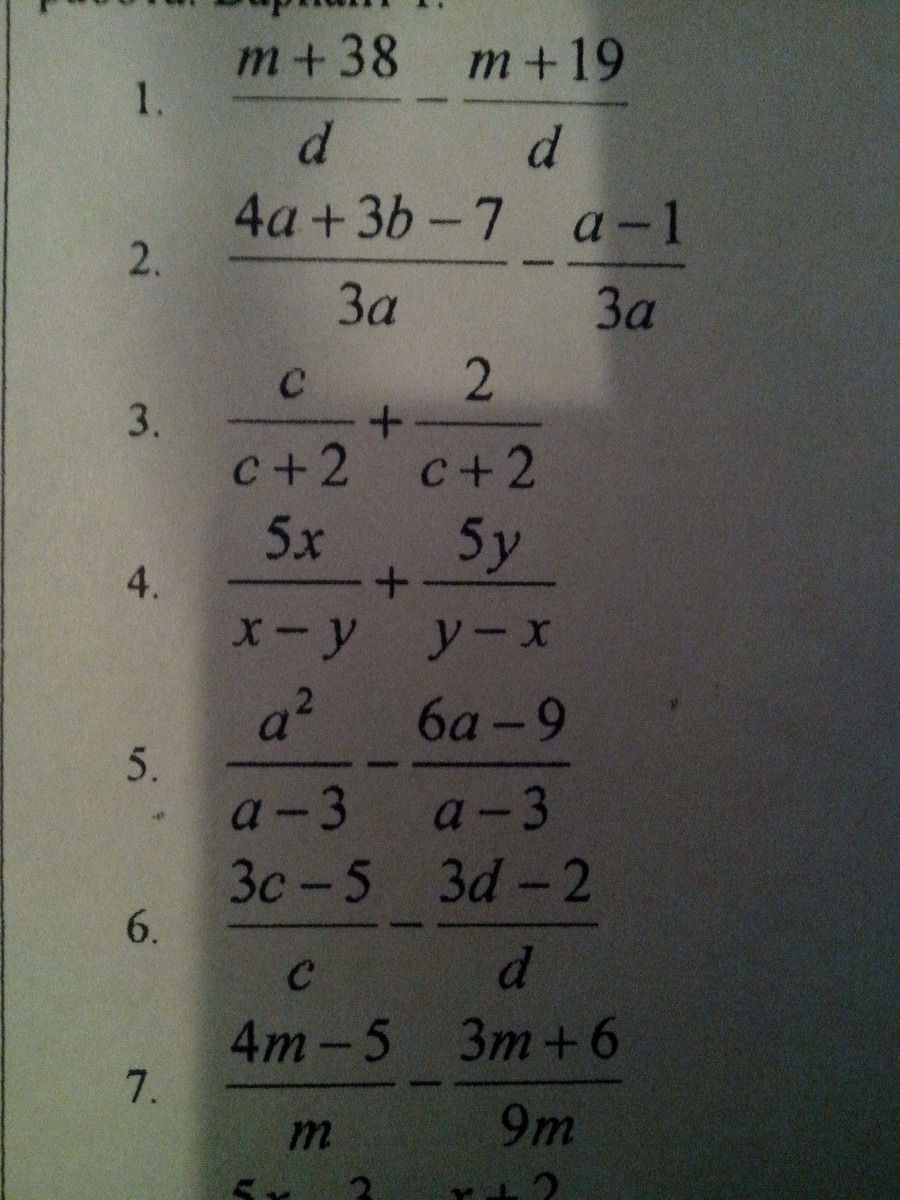 1. \frac{m+38}{d} - \frac{m+19}{d}
2. \frac{4a+3b-7}{3a} - \frac{a-1}{3a}
3. \frac{c}{c+2} + \frac{2}{c+2}
4. \frac{5x}{x-y} + \frac{5y}{y-x}
5. \frac{a^2}{a-3} - \frac{6a-9}{a-3}
6. \frac{3c-5}{c} - \frac{3d-2}{d}
7. \frac{4m-5}{m} - \frac{3m+6}{9m}